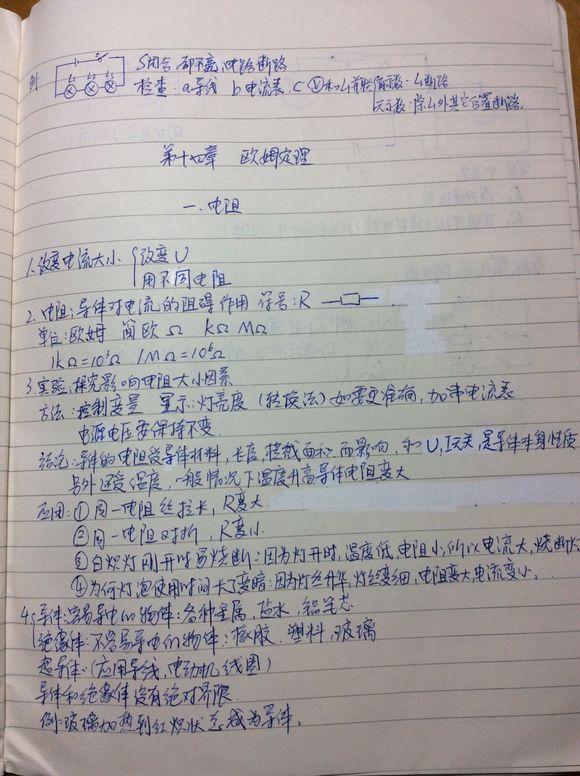 例 L₁ L₂ L₃ S闭合,都不亮,电路断路
检查:a导线 b电流表 c Ⓥ和L₁并联 有示数:L₁断路
无示数:除L₁外其它位置断路。
第十七章 欧姆定理
一、电阻
1.改变电流大小 { 改变U
用不同电阻
2.电阻:导体对电流的阻碍作用 符号:R
单位:欧姆 简欧 Ω KΩ MΩ
1KΩ=10³Ω 1MΩ=10⁶Ω
3.实验:探究影响电阻大小因素
方法:控制变量 显示:灯亮度(转换法)如需更准确,加串电流表
电源电压要保持不变.
结论:导体的电阻受导体材料,长度,横截面积而影响,和U,I无关,是导体本身性质
另外还受温度,一般情况下温度升高导体电阻变大
应用:①同一电阻丝拉长,R变大
②同一电阻对折,R变小.
③白炽灯刚开时易烧断:因为灯开时,温度低,电阻小,所以电流大,烧断灯
④为何灯泡使用时间长了变暗:因为灯丝升华,灯丝变细,电阻变大,电流变小。
4.{导体:容易导电的物体:各种金属,盐水,铅笔芯
绝缘体:不容易导电的物体:橡胶.塑料,玻璃
超导体:(应用导线,电动机线圈)
导体和绝缘体没有绝对界限.
例:玻璃加热到红炽状态成为导体。